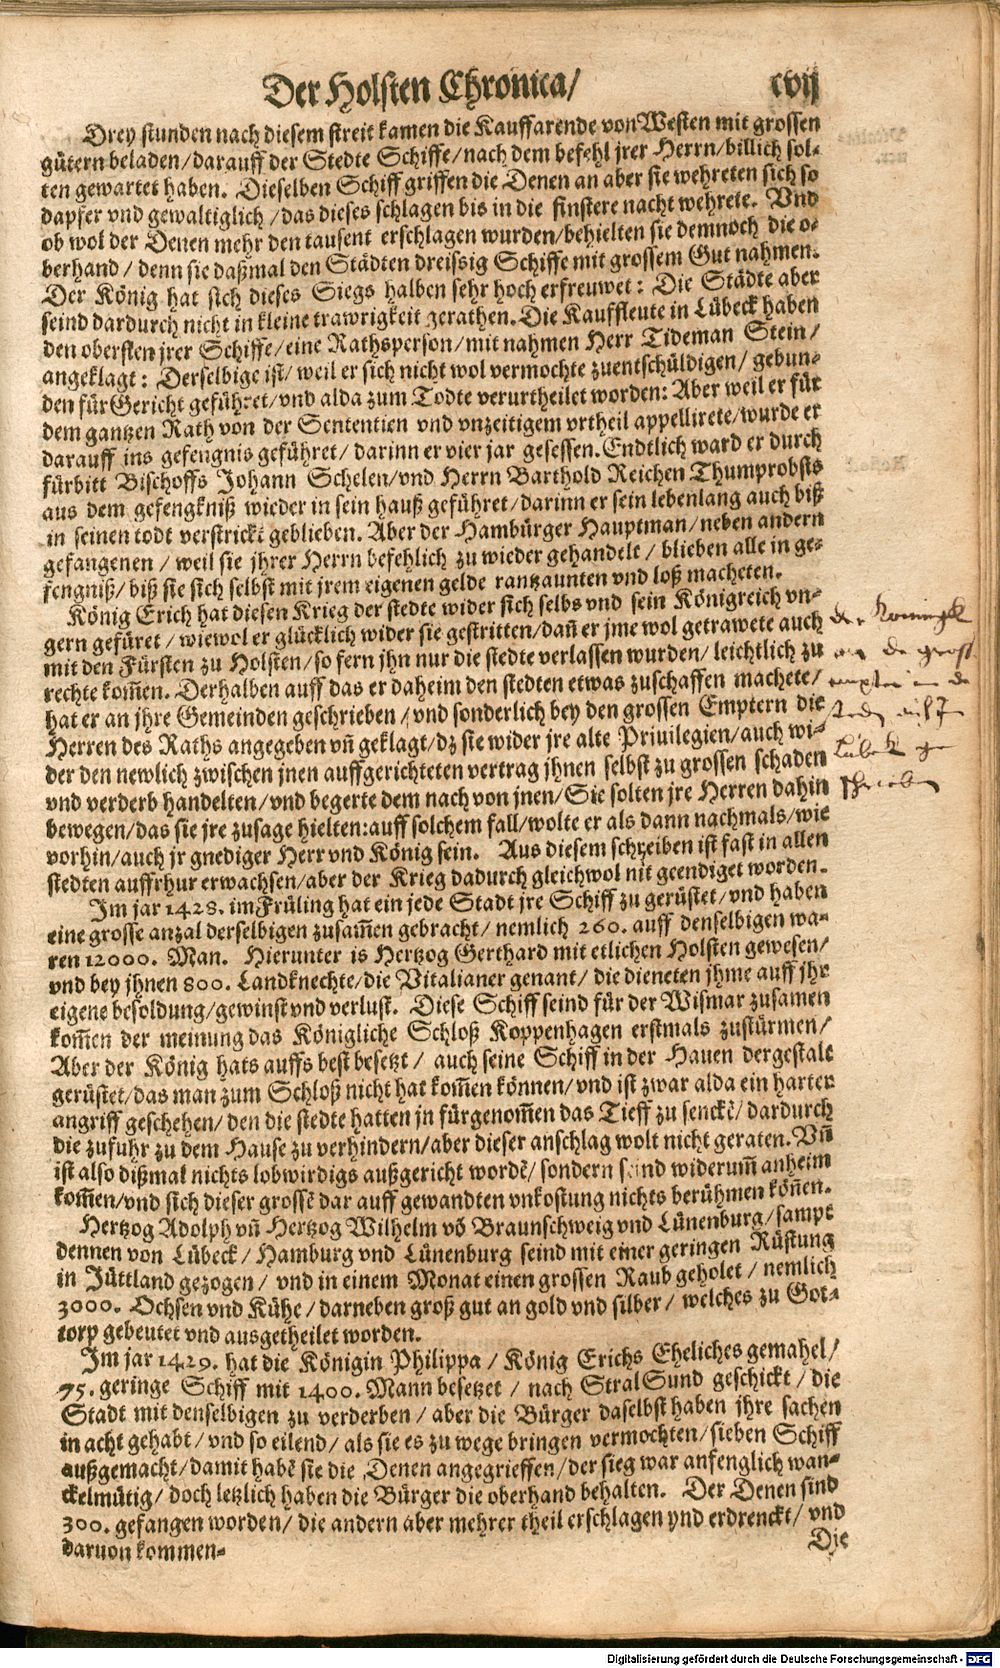 Der Holsten Chronica/ cvij
Drey stunden nach diesem streit kamen die Kauffarende von Westen mit grossen
gütern beladen/darauff der Stedte Schiffe/nach dem befehl jrer Herrn/billich sol-
ten gewartet haben. Dieselben Schiff griffen die Denen an aber sie wehreten sich so
dapfer vnd gewaltiglich/das dieses schlagen bis in die finstere nacht wehrete. Vnd
ob wol der Denen mehr den tausent erschlagen wurden/behielten sie demnoch die o-
berhand/denn sie daßmal den Städten dreissig Schiffe mit grossem Gut nahmen.
Der König hat sich dieses Siegs halben sehr hoch erfreuwet: Die Städte aber
seind dardurch nicht in kleine trawrigkeit gerathen. Die Kauffleute in Lübeck haben
den obersten jrer Schiffe/eine Rathsperson/mit nahmen Herr Tideman Stein/
angeklagt: Derselbige ist/weil er sich nicht wol vermochte zuentschüldigen/gebun-
den für Gericht geführet/vnd alda zum Todte verurtheilet worden: Aber weil er für
dem gantzen Rath von der Sententien vnd vnzeitigem vrtheil appellirete/wurde er
darauff ins gefengnis geführet/darinn er vier jar gesessen. Endtlich ward er durch
fürbitt Bischoffs Johann Schelen/vnd Herrn Barthold Reichen Thumprobsts
aus dem gefengkniß wieder in sein hauß geführet/darinn er sein lebenlang auch biß
in seinen todt verstrickt geblieben. Aber der Hambürger Hauptman/neben andern
gefangenen/weil sie jhrer Herrn befehlich zu wieder gehandelt/blieben alle in ge-
fengniß/biß sie sich selbst mit jrem eigenen gelde rantzaunten vnd loß macheten.
König Erich hat diesen Krieg der stedte wider sich selbs vnd sein Königreich vn-
gern gefüret/wiewol er glücklich wider sie gestritten/dañ er jme wol getrawete auch
mit den Fürsten zu Holsten/so fern jhn nur die stedte verlassen wurden/leichtlich zu
rechte kom̃en. Derhalben auff das er daheim den stedten etwas zuschaffen machete/
hat er an jhre Gemeinden geschrieben/vnd sonderlich bey den grossen Emptern die
Herren des Raths angegeben vñ geklagt/dz sie wider jre alte Priuilegien/auch wi-
der den newlich zwischen jnen auffgerichteten vertrag jhnen selbst zu grossen schaden
vnd verderb handelten/vnd begerte dem nach von jnen/Sie solten jre Herren dahin
bewegen/das sie jre zusage hielten: auff solchem fall/wolte er als dann nachmals/wie
vorhin/auch jr gnediger Herr vnd König sein. Aus diesem schreiben ist fast in allen
stedten auffrhur erwachsen/aber der Krieg dadurch gleichwol nit geendiget worden.
Im jar 1428. im Früling hat ein jede Stadt jre Schiff zu gerüstet/vnd haben
eine grosse anzal derselbigen zusam̃en gebracht/nemlich 260. auff denselbigen wa-
ren 12000. Man. Hierunter is Hertzog Gerthard mit etlichen Holsten gewesen/
vnd bey jhnen 800. Landknechte/die Vitalianer genant/die dieneten jhme auff jhr
eigene besoldung/gewinst vnd verlust. Diese Schiff seind für der Wismar zusamen
kom̃en der meinung das Königliche Schloß Koppenhagen erstmals zustürmen/
Aber der König hats auffs best besetzt/auch seine Schiff in der Hauen dergestalt
gerüstet/das man zum Schloß nicht hat kom̃en können/vnd ist zwar alda ein harter
angriff geschehen/den die stedte hatten jn fürgenom̃en das Tieff zu senckē/dardurch
die zufuhr zu dem Hause zu verhindern/aber dieser anschlag wolt nicht geraten. Vñ
ist also dißmal nichts lobwirdigs außgericht wordē/sondern seind widerum̃ anheim
kom̃en/vnd sich dieser grossē dar auff gewandten vnkostung nichts berühmen köñen.
Hertzog Adolph vñ Hertzog Wilhelm vō Braunschweig vnd Lünenburg/sampt
dennen von Lübeck/Hamburg vnd Lünenburg seind mit einer geringen Rüstung
in Jüttland gezogen/vnd in einem Monat einen grossen Raub geholet/nemlich
3000. Ochsen vnd Kühe/darneben groß gut an gold vnd silber/welches zu Got-
torp gebeutet vnd ausgetheilet worden.
Im jar 1429. hat die Königin Philippa/König Erichs Eheliches gemahel/
75. geringe Schiff mit 1400. Mann besetzet/nach StralSund geschickt/die
Stadt mit denselbigen zu verderben/aber die Bürger daselbst haben jhre sachen
in acht gehabt/vnd so eilend/als sie es zu wege bringen vermochten/sieben Schiff
außgemacht/damit habē sie die Denen angegrieffen/der sieg war anfenglich wan-
ckelmütig/doch letzlich haben die Bürger die oberhand behalten. Der Denen sind
300. gefangen worden/die andern aber mehrer theil erschlagen vnd erdrenckt/vnd
daruon kommen-
Die
der Koningk
an de grost
empter in de
steden
Lübeck ge
schrieben
Digitalisierung gefördert durch die Deutsche Forschungsgemeinschaft - DFG